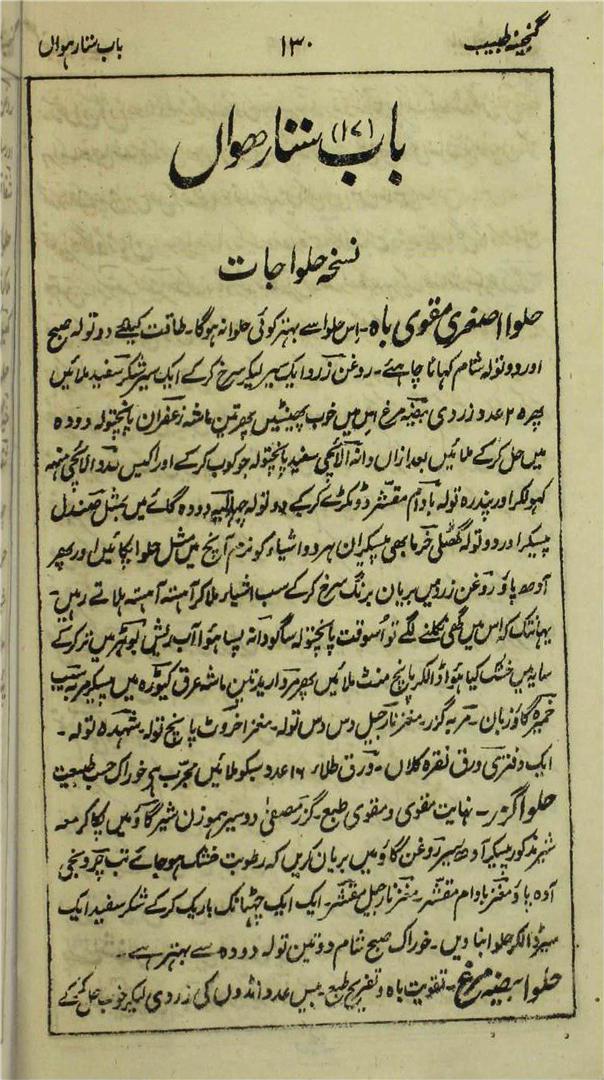 گنجینہ طبیب ۱۳۰ باب ستارہواں
باب (۱۷) ستارھواں
نسخہ حلواجات
حلوا اصغری مقوی باہ۔ اس حلوا سے بہتر کوئی حلوا نہ ہوگا۔ طاقت کیلئے دو تولہ صبح
اور دو تولہ شام کھانا چاہئے۔ روغن زرد ایک سیر لیکر سرخ کرکے ایک سیر شکر سفید ملائیں
پھر ۲۵ عدد زردی بیضہ مرغ اس میں خوب پھینٹیں پھر تین ماشہ زعفران پانچتولہ دودہ
میں حل کرکے ملائیں بعد ازاں دانہ الائچی سفید پانچتولہ جوکوب کرکے اور اکیس عدد الائچی منہہ
کہولکر اور پندرہ تولہ بادام مقشر دو ٹکڑے کرکے دو تولہ دودہ گائے میں مثل صندل
پیسکر اور دو تولہ گٹھلی خرما بھی پیسکر ان ہر دو اشیاء کو نرم آنچ میں مثل حلوا پکائیں اور پھر
آدھ پاؤ روغن زرد میں بریاں برنگ سرخ کرکے سب اشیاء ملاکر آہستہ آہستہ ہلاتے رہیں۔
یہانتک کہ اس میں گھی نکلنے لگے تو اسوقت پانچتولہ ساگودانہ پسا ہوا آب میں تر کرکے
سایہ میں خشک کیا ہوا ڈالکر پانچ منٹ ملائیں پھر مروارید تین ماشہ عرق کیوڑہ میں پیسکر مربہ سیب
خمیرہ گاؤزبان۔ مربہ گزر۔ مغز نارجیل دس دس تولہ۔ مغز اخروٹ پانچ تولہ۔ شہد ۵ تولہ۔
ایک دفتری ورق نقرہ کلاں۔ ورق طلاء ۱۶ عدد سبکو ملائیں مجرب ہے خوراک حسب طبیعت
حلوا گزر۔ نہایت مقوی و مقوی طبع۔ گزر مصفیٰ دو سیر ہموزن شیر گاؤ میں پکا کر معہ
شیر مذکور پیسکر آدھ سیر روغن گاؤ میں بریاں کریں کہ رطوبت خشک ہو جائے تب چرونجی
آدہ پاؤ مغز بادام مقشر۔ مغز نارجیل مقشر۔ ایک ایک چھٹانک باریک کرکے شکر سفید ایک
سیر ڈالکر حلوا بنا دیں۔ خوراک صبح شام دو تین تولہ دودہ سے بہتر ہے۔
حلوا بیضہ مرغ۔ تقویت باہ و تفریح طبع۔ بیس عدد انڈوں کی زردی لیکر خوب حل کرکے